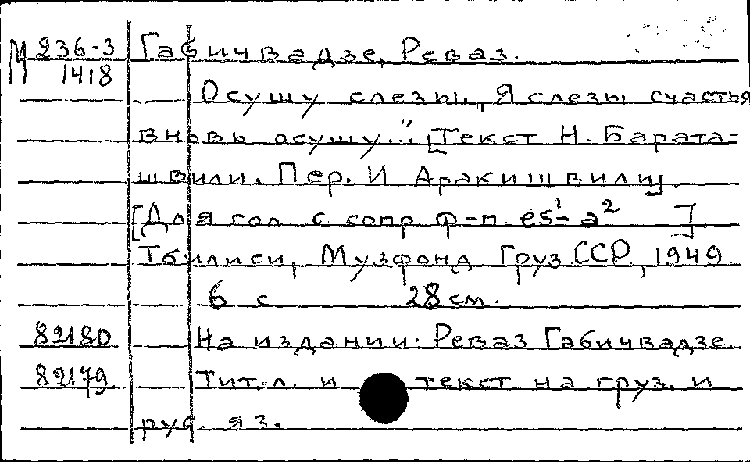 М 236-3 Габичвадзе, Реваз.
1418
Осушу слезы, Я слезы счастья
вновь осушу.". [Текст Н. Барата=
швили. Пер. И Аракишвили].
[Для гол. с сопр. ф-п. es¹-a² ]
Тбилиси, Музфонд Груз ССР, 1949
6 с 28 см.
82180 На издании: Реваз Габичвадзе.
82179 Тит. л. и текст на груз. и
рус. яз.